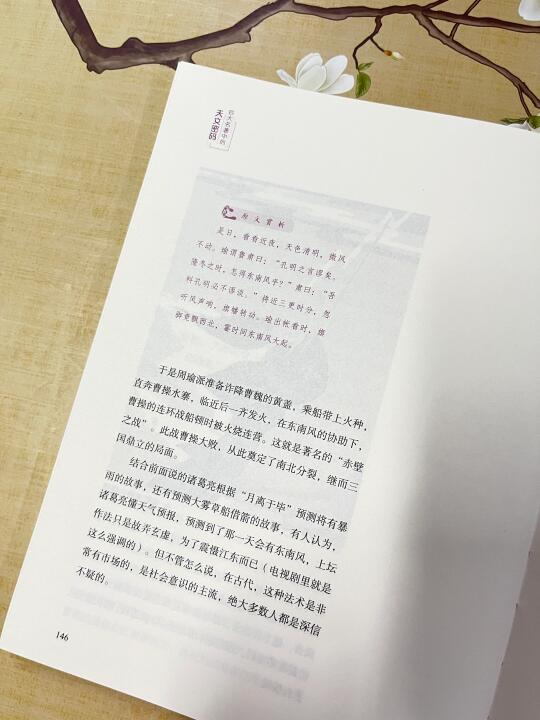 四大名著中的
天文密码
原文赏析
是日，看看近夜，天色清明，微风
不动。瑜谓鲁肃曰：“孔明之言谬矣。
隆冬之时，怎得东南风乎？”肃曰：“吾
料孔明必不谬谈。”将近三更时分，忽
听风声响，旗幡转动。瑜出帐看时，旗
脚竟飘西北，霎时间东南风大起。
于是周瑜派准备诈降曹魏的黄盖，乘船带上火种，
直奔曹操水寨，临近后一齐发火，在东南风的协助下，
曹操的连环战船顿时被火烧连营。这就是著名的“赤壁
之战”。此战曹操大败，从此奠定了南北分裂，继而三
国鼎立的局面。
结合前面说的诸葛亮根据“月离于毕”预测将有暴
雨的故事，还有预测大雾草船借箭的故事，有人认为，
诸葛亮懂天气预报，预测到了那一天会有东南风，上坛
作法只是故弄玄虚，为了震慑江东而已（电视剧里就是
这么强调的）。但不管怎么说，在古代，这种法术是非
常有市场的，是社会意识的主流，绝大多数人都是深信
不疑的。
146